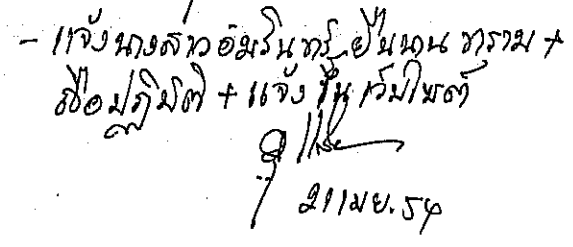 - แจ้งนางสาวอัมรินทร์ ยืนนาน ทราบ +
ถือปฏิบัติ + แจ้งขึ้นเว็บไซต์
21 เมย. 54